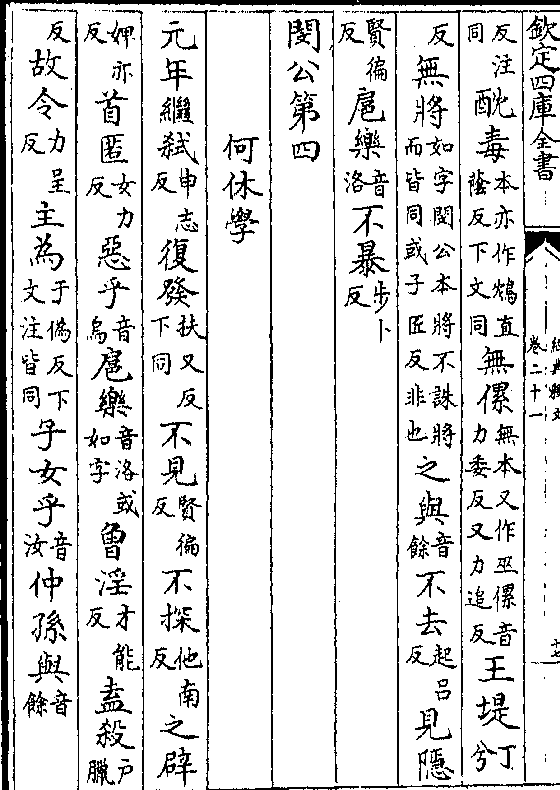 欽定四庫全書 經典釋文 卷二十一 十七
反注同酖毒本亦作鴆直蔭反下文同無傫無本又作巫傫音力委反又力追反王堤丁兮
反無將如字閔公本將不誅將而皆同或子匠反非也之與音餘不去起呂反見隱
賢徧反扈樂音洛不暴步卜反
閔公第四
何休學
元年繼弒申志反復發扶又反下同不見賢徧反不探他南反之辟
婢亦反首匿女力反惡乎音烏扈樂音洛或如字曾淫才能反盍殺戶臘
反故令力呈反主為于偽反下文注皆同子女乎音汝仲孫與音餘